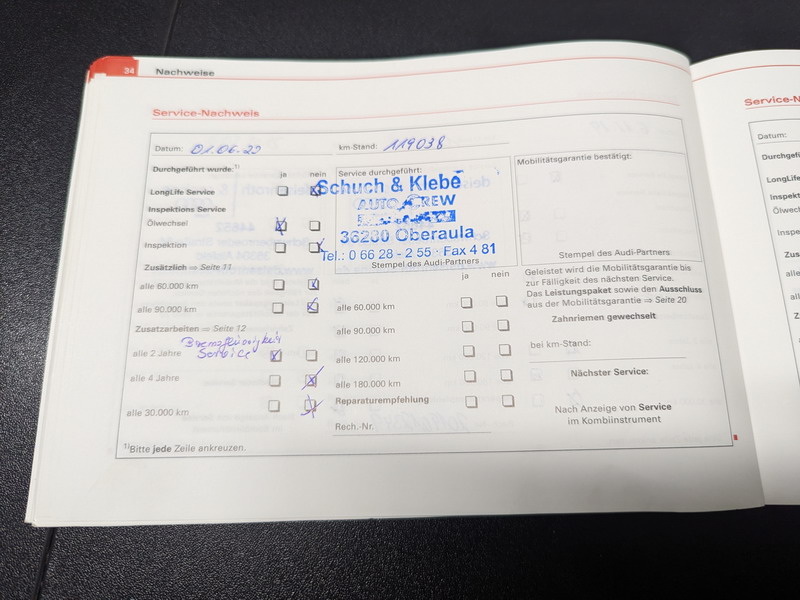 34 Nachweise
Service-Nachweis
Datum: 01.06.22 km-Stand: 119038
Durchgeführt wurde:1) ja nein
LongLife Service
Inspektions Service
Ölwechsel
Inspektion
Zusätzlich ⇒ Seite 11
alle 60.000 km
alle 90.000 km
Zusatzarbeiten ⇒ Seite 12
Bremsflüssigkeit
alle 2 Jahre Service
alle 4 Jahre
alle 30.000 km
1)Bitte jede Zeile ankreuzen.
Service durchgeführt:
Schuch & Klebe
AUTO CREW
36280 Oberaula
Tel.: 0 66 28 - 2 55 · Fax 4 81
Stempel des Audi-Partners
ja nein
alle 60.000 km
alle 90.000 km
alle 120.000 km
alle 180.000 km
Reparaturempfehlung
Rech.-Nr.
Mobilitätsgarantie bestätigt:
Stempel des Audi-Partners
Geleistet wird die Mobilitätsgarantie bis
zur Fälligkeit des nächsten Service.
Das Leistungspaket sowie den Ausschluss
aus der Mobilitätsgarantie ⇒ Seite 20
Zahnriemen gewechselt
bei km-Stand:
Nächster Service:
Nach Anzeige von Service
im Kombiinstrument
Service-N
Datum:
Durchgefü
LongLife S
Inspektion
Ölwechs
Inspektio
Zusätzlic
alle 60.0
alle 90.0
Zusatza
alle 2 J
alle 4
alle 3